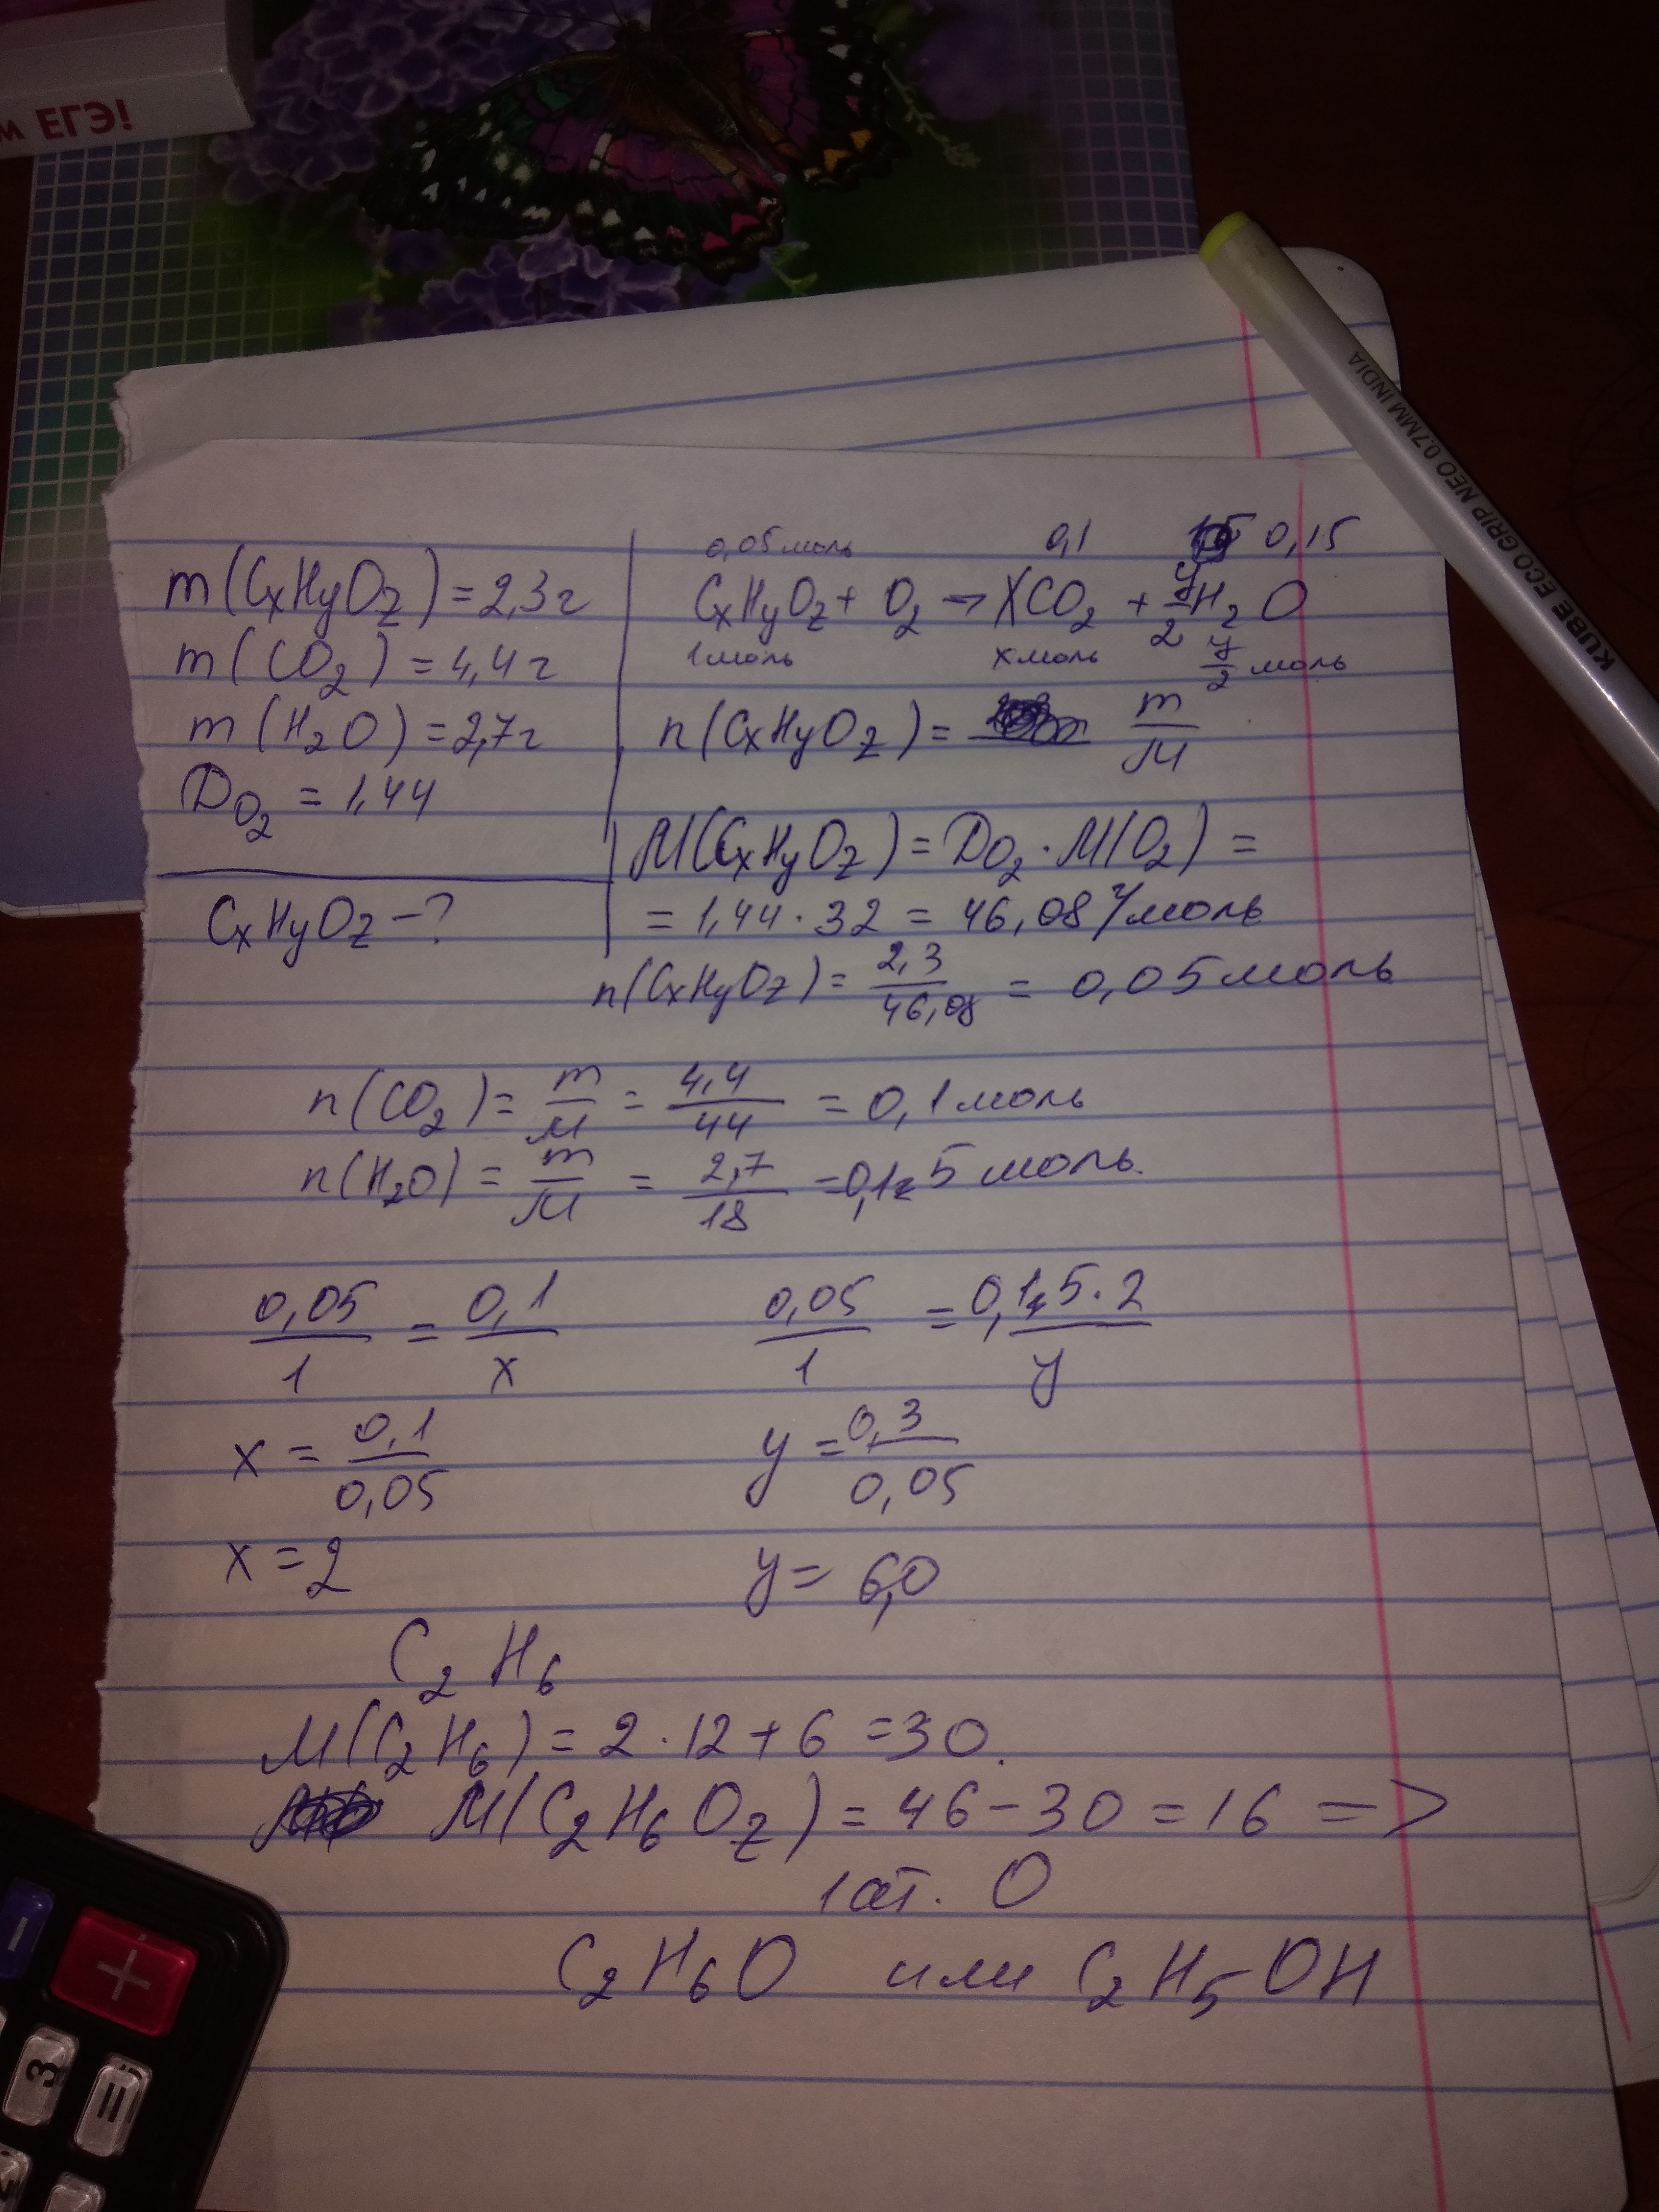 м ЕГЭ!
KUBE ECO GRIP NEO 0.7MM INDIA
m(CxHyOz) = 2,3г
m(CO2) = 4,4г
m(H2O) = 2,7г
DO2 = 1,44
CxHyOz - ?
0,05 моль 0,1 0,15
CxHyOz + O2 → XCO2 + y/2 H2O
1 моль x моль y/2 моль
n(CxHyOz) = m/M
M(CxHyOz) = DO2 · M(O2) =
= 1,44 · 32 = 46,08 г/моль
n(CxHyOz) = 2,3/46,08 = 0,05 моль
n(CO2) = m/M = 4,4/44 = 0,1 моль
n(H2O) = m/M = 2,7/18 = 0,15 моль.
0,05/1 = 0,1/x 0,05/1 = 0,15·2/y
x = 0,1/0,05 y = 0,3/0,05
x = 2 y = 6,0
C2H6
M(C2H6) = 2·12+6 = 30.
M(C2H6Oz) = 46-30 = 16 =>
1 ат. O
C2H6O или C2H5OH
+
-
3
=
2